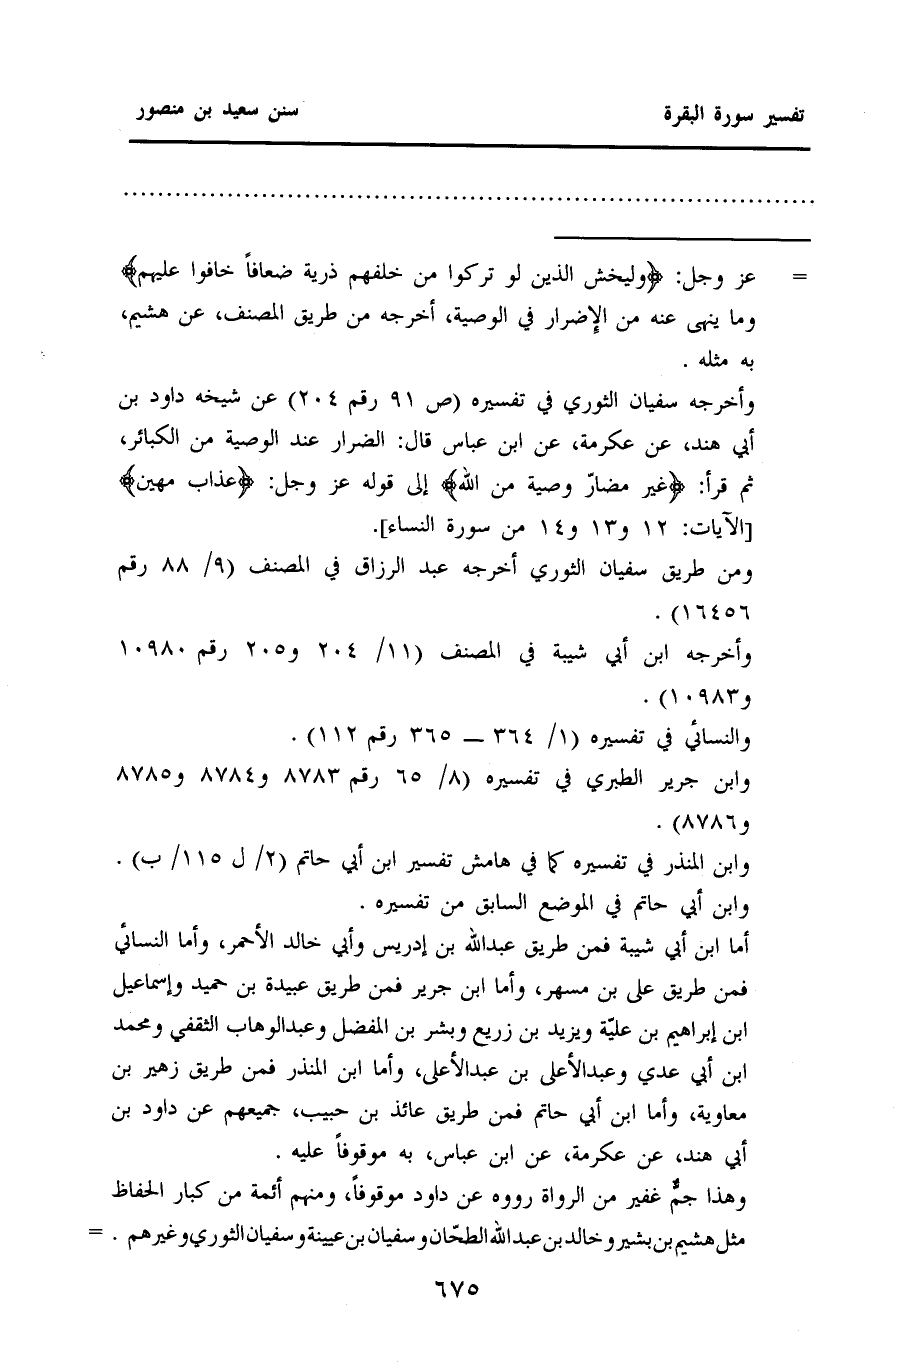 تفسير سورة البقرة سنن سعيد بن منصور
................................................................................
= عز وجل: ﴿وليخش الذين لو تركوا من خلفهم ذرية ضعافاً خافوا عليهم﴾
وما ينهى عنه من الإضرار في الوصية، أخرجه من طريق المصنف، عن هشيم،
به مثله .
وأخرجه سفيان الثوري في تفسيره (ص ٩١ رقم ٢٠٤) عن شيخه داود بن
أبي هند، عن عكرمة، عن ابن عباس قال: الضرار عند الوصية من الكبائر،
ثم قرأ: ﴿غير مضارّ وصية من الله﴾ إلى قوله عز وجل: ﴿عذاب مهين﴾
[الآيات: ١٢ و١٣ و١٤ من سورة النساء].
ومن طريق سفيان الثوري أخرجه عبد الرزاق في المصنف (٩/ ٨٨ رقم
١٦٤٥٦) .
وأخرجه ابن أبي شيبة في المصنف (١١/ ٢٠٤ و٢٠٥ رقم ١٠٩٨٠
و١٠٩٨٣) .
والنسائي في تفسيره (١/ ٣٦٤ ـ ٣٦٥ رقم ١١٢) .
وابن جرير الطبري في تفسيره (٨/ ٦٥ رقم ٨٧٨٣ و٨٧٨٤ و٨٧٨٥
و٨٧٨٦) .
وابن المنذر في تفسيره كما في هامش تفسير ابن أبي حاتم (٢/ ل ١١٥/ ب) .
وابن أبي حاتم في الموضع السابق من تفسيره .
أما ابن أبي شيبة فمن طريق عبدالله بن إدريس وأبي خالد الأحمر، وأما النسائي
فمن طريق علي بن مسهر، وأما ابن جرير فمن طريق عبيدة بن حميد وإسماعيل
ابن إبراهيم بن عليّة ويزيد بن زريع وبشر بن المفضل وعبدالوهاب الثقفي ومحمد
ابن أبي عدي وعبدالأعلى بن عبدالأعلى، وأما ابن المنذر فمن طريق زهير بن
معاوية، وأما ابن أبي حاتم فمن طريق عائذ بن حبيب، جميعهم عن داود بن
أبي هند، عن عكرمة، عن ابن عباس، به موقوفاً عليه .
وهذا جمٌّ غفير من الرواة رووه عن داود موقوفاً، ومنهم أئمة من كبار الحفاظ
مثل هشيم بن بشير وخالد بن عبدالله الطحّان وسفيان بن عيينة وسفيان الثوري وغيرهم . =
٦٧٥